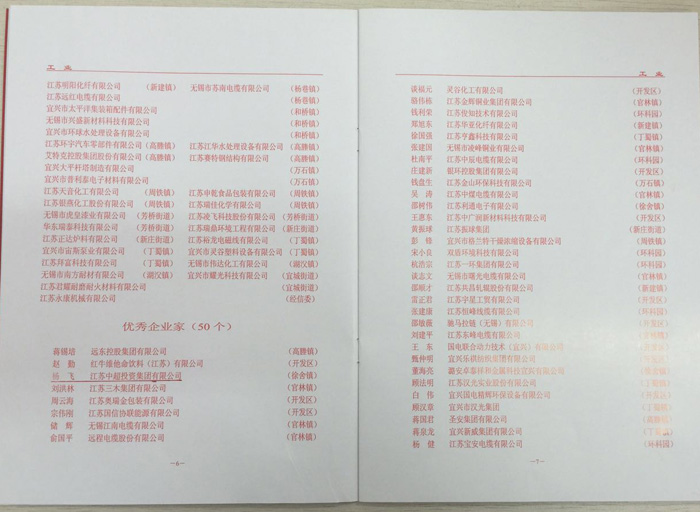 工 业
江苏明阳化纤有限公司 （新建镇） 无锡市苏南电缆有限公司 （杨巷镇）
江苏远红电缆有限公司 （杨巷镇）
宜兴市太平洋集装箱配件有限公司 （和桥镇）
无锡市兴盛新材料科技有限公司 （和桥镇）
宜兴市环球水处理设备有限公司 （和桥镇）
江苏环宇汽车零部件有限公司 （高塍镇） 江苏江华水处理设备有限公司 （高塍镇）
艾特克控股集团股份有限公司 （高塍镇） 江苏赛特钢结构有限公司 （高塍镇）
宜兴大平杆塔制造有限公司 （万石镇）
宜兴市普利泰电子材料有限公司 （万石镇）
江苏天音化工有限公司 （周铁镇） 江苏申乾食品包装有限公司 （周铁镇）
江苏银燕化工股份有限公司 （周铁镇） 江苏瑞佳化学有限公司 （周铁镇）
无锡市虎皇漆业有限公司 （芳桥街道） 江苏凌飞科技股份有限公司 （芳桥街道）
华东瑞泰科技有限公司 （芳桥街道） 江苏瑞鼎环境工程有限公司 （新庄街道）
江苏正达炉料有限公司 （新庄街道） 江苏裕龙电磁线有限公司 （丁蜀镇）
宜兴市宙斯泵业有限公司 （丁蜀镇） 宜兴市灵谷塑料设备有限公司 （丁蜀镇）
江苏拜富科技有限公司 （丁蜀镇） 无锡市伟达化工有限公司 （湖㳇镇）
无锡市南方耐材有限公司 （湖㳇镇） 宜兴市耀光科技有限公司 （宜城街道）
江苏君耀耐磨耐火材料有限公司 （宜城街道）
江苏永康机械有限公司 （经信委）
优秀企业家（50 个）
蒋锡培 远东控股集团有限公司 （高塍镇）
赵 勤 红牛维他命饮料（江苏）有限公司 （开发区）
杨 飞 江苏中超投资集团有限公司
刘洪林 江苏三木集团有限公司 （官林镇）
周云海 江苏奥瑞金包装有限公司 （开发区）
宗伟刚 江苏国信协联能源有限公司 （开发区）
储 辉 无锡江南电缆有限公司 （官林镇）
俞国平 远程电缆股份有限公司 （官林镇）
—6—
工 业
谈福元 灵谷化工有限公司 （开发区）
骆伟栋 江苏金辉铜业集团有限公司 （官林镇）
钱利荣 江苏俊知技术有限公司 （环科园）
郑旭东 江苏华亚化纤有限公司 （新建镇）
徐国强 江苏亨鑫科技有限公司 （丁蜀镇）
张建国 无锡市凌峰铜业有限公司 （官林镇）
杜南平 江苏中辰电缆有限公司 （环科园）
庄建新 银环控股集团有限公司 （开发区）
钱盘生 江苏金山环保科技有限公司 （万石镇）
吴 涛 江苏中煤电缆有限公司 （官林镇）
邵树伟 江苏利通电子有限公司 （徐舍镇）
王惠东 江苏中广润新材料科技有限公司 （开发区）
黄振球 江苏振球集团 （新庄街道）
彭 锋 宜兴市格兰特干燥浓缩设备有限公司 （周铁镇）
宋小良 双盾环境科技有限公司 （环科园）
杭浩宗 江苏一环集团有限公司 （环科园）
谈志文 无锡市曙光电缆有限公司 （官林镇）
邵顺才 江苏共昌轧辊股份有限公司 （新建镇）
雷正君 江苏宇星工贸有限公司 （开发区）
张建康 江苏恒峰线缆有限公司 （官林镇）
邵敏薇 驰马拉链（无锡）有限公司 （开发区）
刘建平 江苏东峰电缆有限公司 （丁蜀镇）
王 东 国电联合动力技术（宜兴）有限公司 （开发区）
甄仲明 宜兴乐祺纺织集团有限公司
董海亮 潞安阜泰秤和金属科技宜兴有限公司 （徐舍镇）
顾法明 江苏汉光实业股份有限公司
白 伟 宜兴国电精辉环保设备有限公司 （开发区）
顾汉章 宜兴市汉光集团
蒋国君 圣安集团有限公司 （高塍镇）
蒋泉龙 宜兴新威集团有限公司 （丁蜀镇）
杨 健 江苏宝安电缆有限公司 （环科园）
—7—